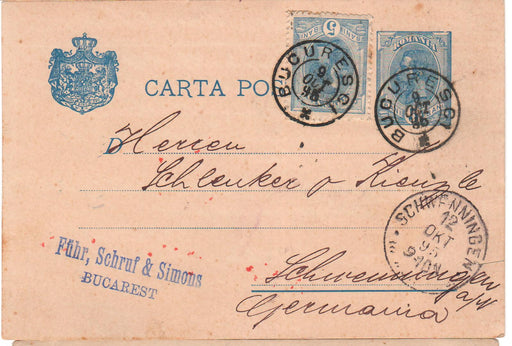 CARTA PO
BANI 5 BANI
ROMANIA
BUCURESCI
9
OCT
96
BUCURESCI
9
OCT
D Herren
Schlenker & Kienzle
SCHWENNINGEN
12
OKT
Führ, Schruf & Simons
BUCAREST
Schwenningen
a/N
Germania